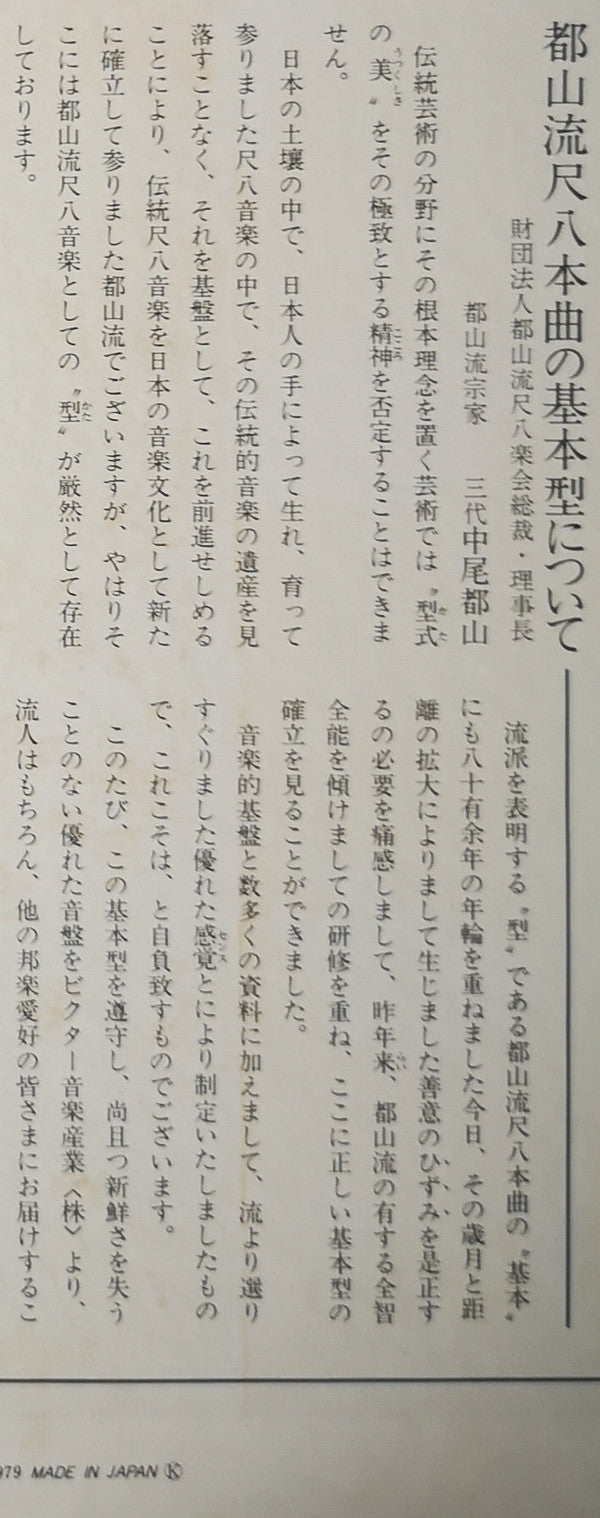 都山流尺八本曲の基本型について
財団法人都山流尺八楽会総裁・理事長
都山流宗家　三代中尾都山
伝統芸術の分野にその根本理念を置く芸術では〝型式
の〝美〟をその極致とする精神を否定することはできま
せん。
日本の土壌の中で、日本人の手によって生れ、育って
参りました尺八音楽の中で、その伝統的音楽の遺産を見
落すことなく、それを基盤として、これを前進せしめる
ことにより、伝統尺八音楽を日本の音楽文化として新た
に確立して参りました都山流でございますが、やはりそ
こには都山流尺八音楽としての〝型〟が厳然として存在
しております。
流派を表明する〝型〟である都山流尺八本曲の〝基本〟
にも八十有余年の年輪を重ねました今日、その歳月と距
離の拡大によりまして生じました善意のひずみを是正す
るの必要を痛感しまして、昨年来、都山流の有する全智
全能を傾けましての研修を重ね、ここに正しい基本型の
確立を見ることができました。
音楽的基盤と数多くの資料に加えまして、流より選り
すぐりました優れた感覚とにより制定いたしましたもの
で、これこそは、と自負致すものでございます。
このたび、この基本型を遵守し、尚且つ新鮮さを失う
ことのない優れた音盤をビクター音楽産業〈株〉より、
流人はもちろん、他の邦楽愛好の皆さまにお届けするこ
979 MADE IN JAPAN Ⓚ